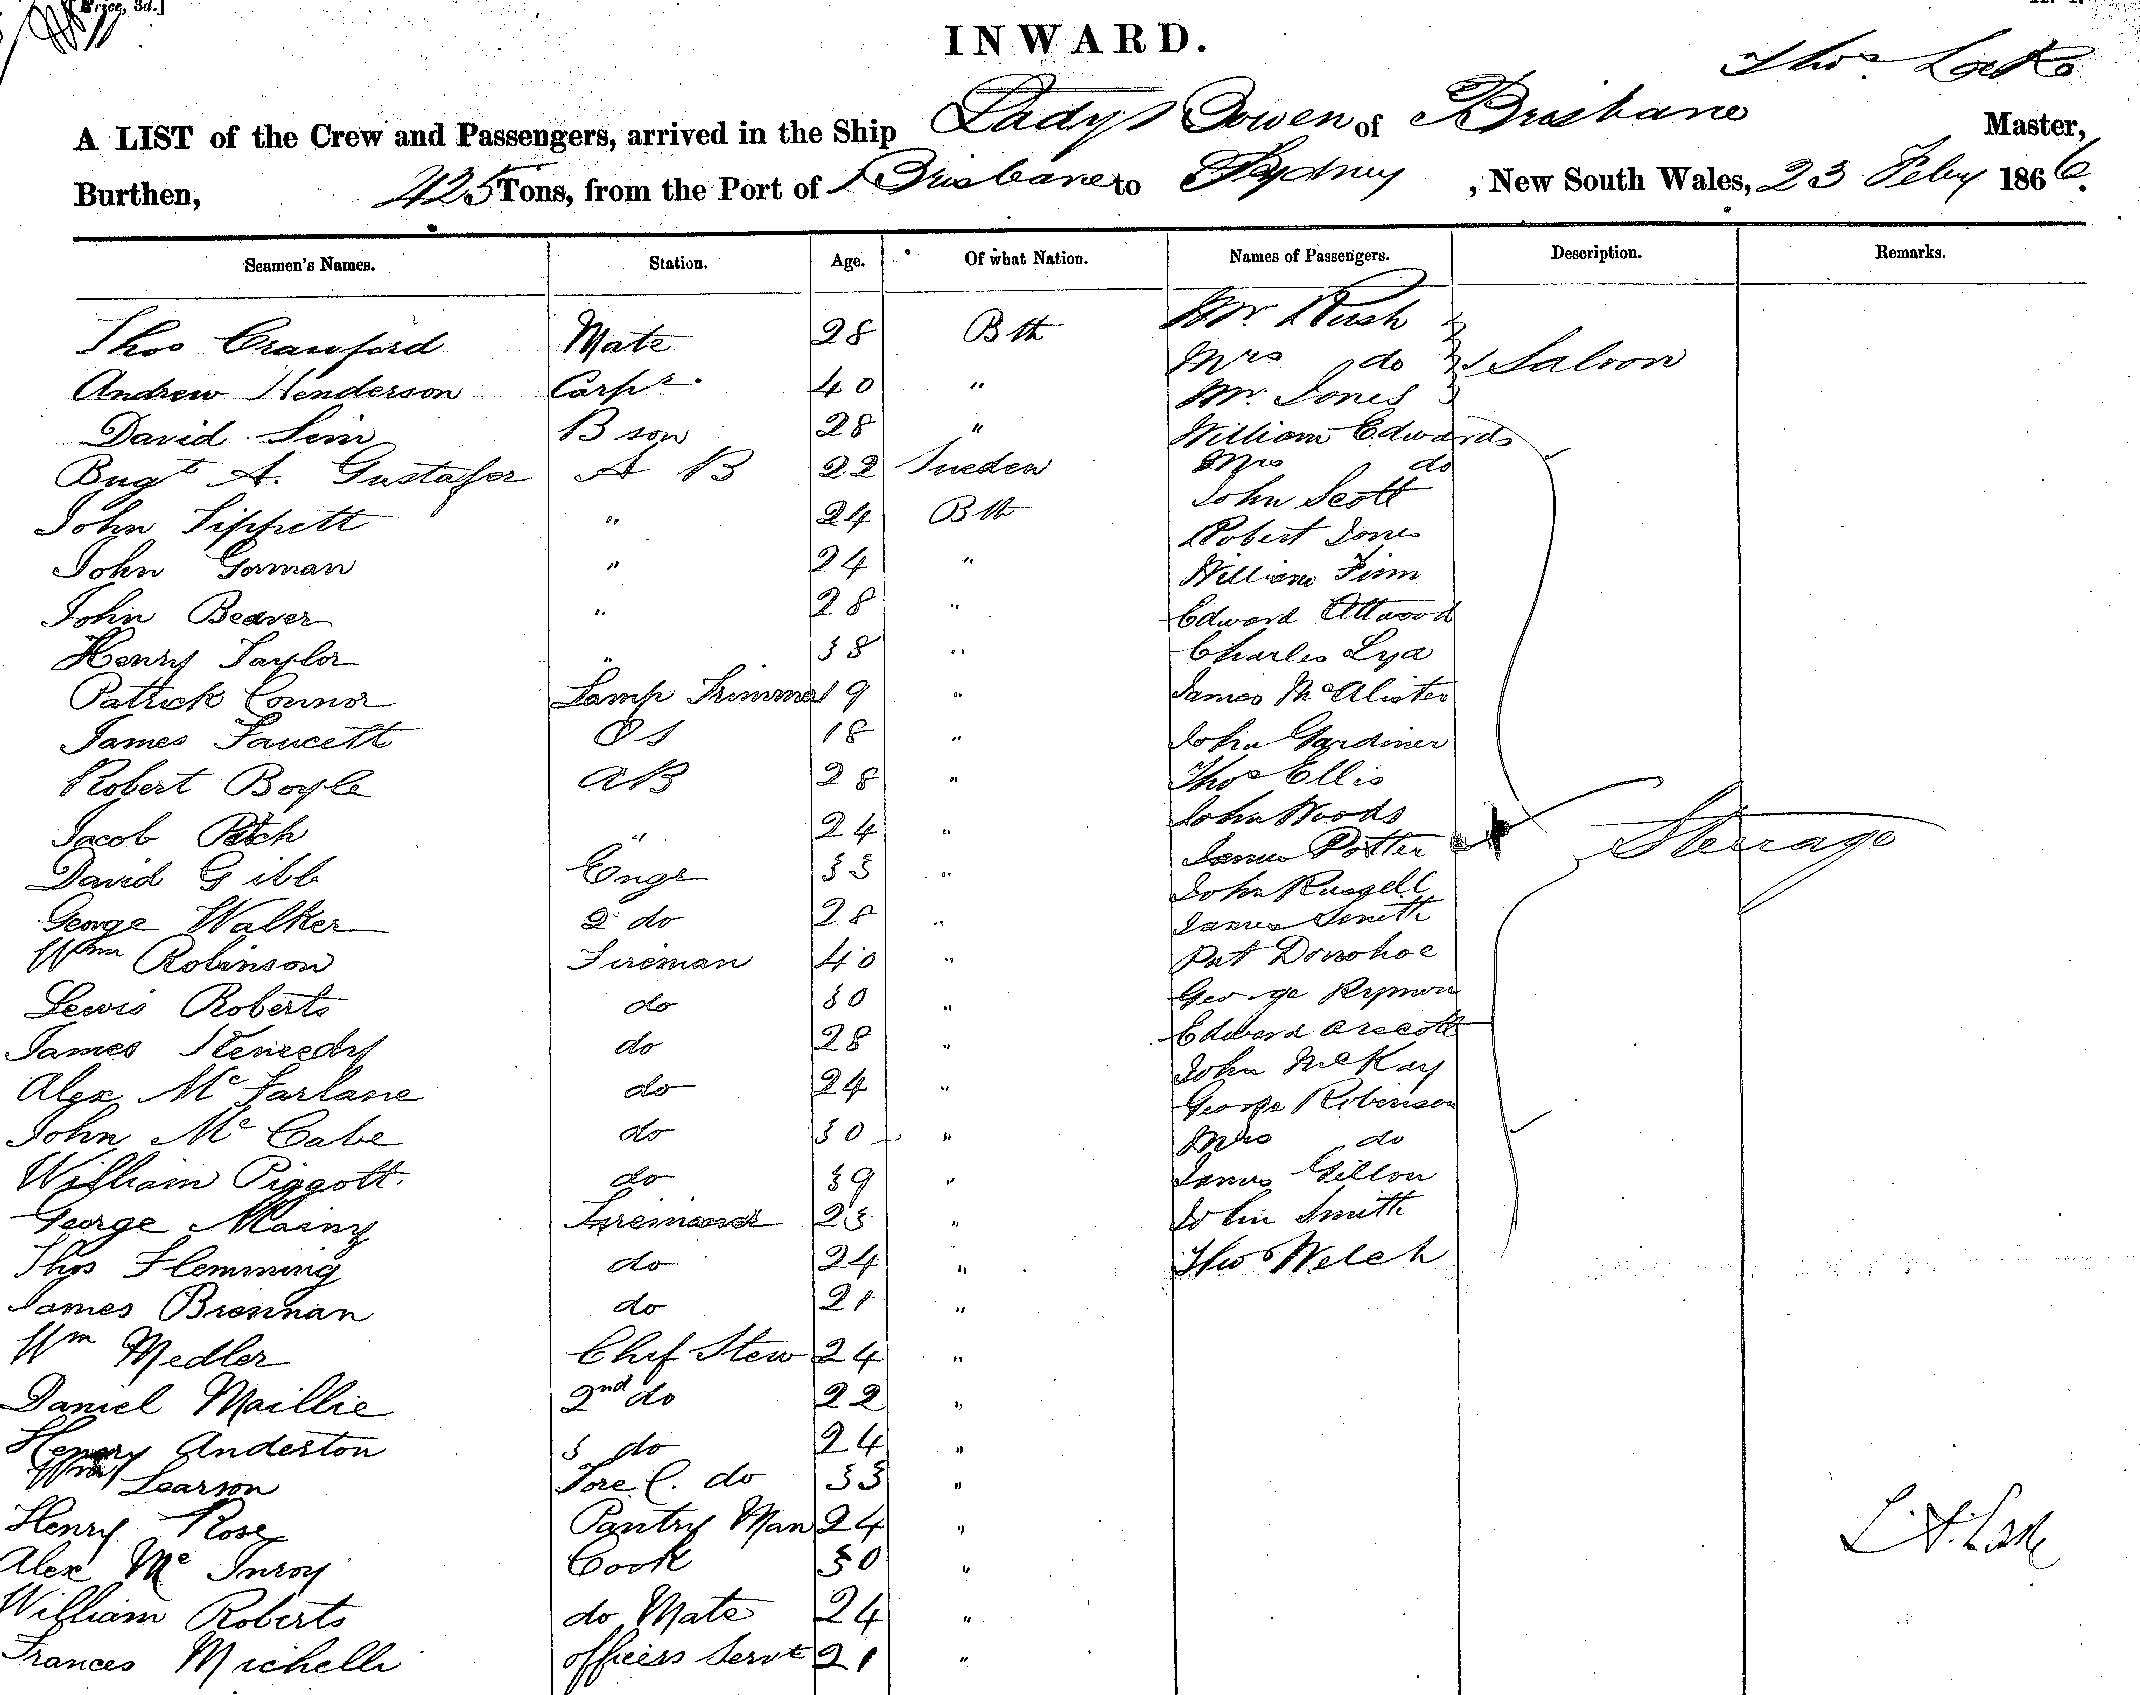 Price, 3d.]
INWARD.
Thos Lake
A LIST of the Crew and Passengers, arrived in the Ship Lady Bowen of Brisbane Master,
Burthen, 425 Tons, from the Port of Brisbane to Sydney, New South Wales, 23 Feby 1866.
Seamen's Names. Station. Age. Of what Nation. Names of Passengers. Description. Remarks.
Thos Crawford Mate 28 Bth Mr. Rush
Mrs do Saloon
Andrew Henderson Carpr. 40 " Mr. Jones
David Sim Bson 28 " William Edwards
Bngt A. Gustafer A B 22 Sueden Mrs do
John Tippett " 24 Bth John Scott
Robert Jones
John Gorman " 24 " William Finn
John Beaver " 28 " Edward Attwood
Henry Taylor " 38 " Charles Lya
Patrick Connor Lamp Trimmer 19 " James McAlister
James Faucett OS 18 " John Gardiner
Robert Boyle AB 28 " Thos Ellis
John Woods
Jacob " 24 " James Potter Steerage
David Gibb Engr 33 " John Russell
George Walker 2 do 28 " James Smith
Wm Robinson Fireman 40 " Pat Donohoe
Lewis Roberts do 30 " George
James Kenecdy do 28 " Edward
Alex McFarlane do 24 " John McKay
George Robinson
John McCabe do 30 " Mrs do
William Piggott. do 39 " James Gillon
George Mainy 23 " John Smith
Thos Flemming do 24 " Thos Welch
James Brennan do 21 "
Wm Medler Chef Stew 24 "
Daniel Maillie 2nd do 22 "
Henry Anderton 3 do 24 "
Wm Learson Fore C. do 33 "
Henry Rose Pantry Man 24 "
Alex McInroy Cook 30 "
William Roberts do Mate 24 "
Frances Michelli officers Servt 21 "